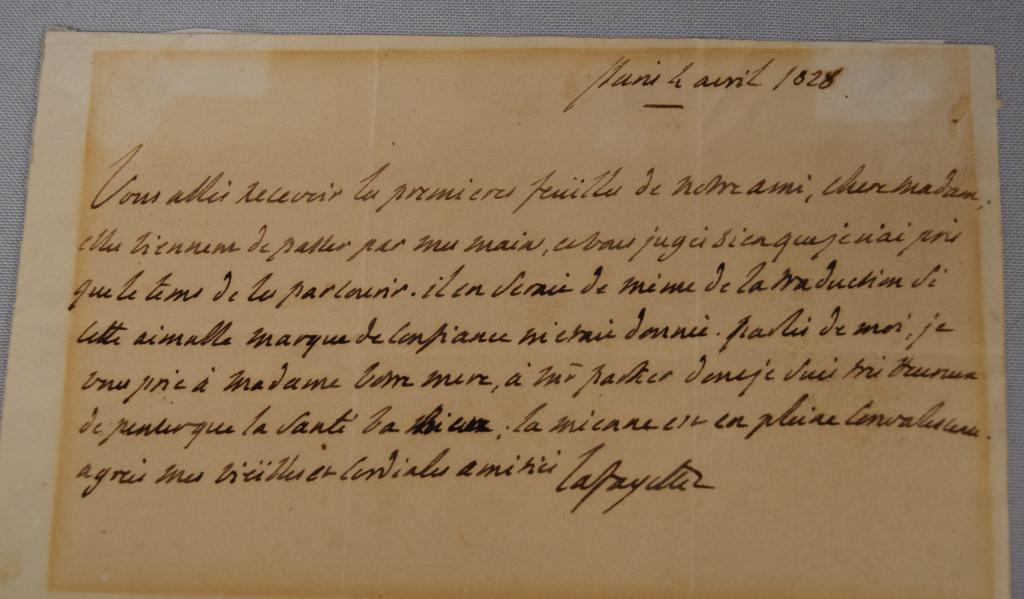 Paris 4 avril 1828
Vous allés recevoir les premieres feuilles de notre ami, chere madame,
elles viennent de passer par mes mains, et vous jugés bien que je n'ai pris
que le tems de les parcourir. il en serait de même de la traduction si
cette aimable marque de confiance m'etait donnée. parlés de moi, je
vous prie à madame votre mere, à Mr parker dont je suis très heureux
de penser que la santé va mieux. la mienne est en pleine convalescence.
agréés mes vieilles et cordiales amitiés Lafayette